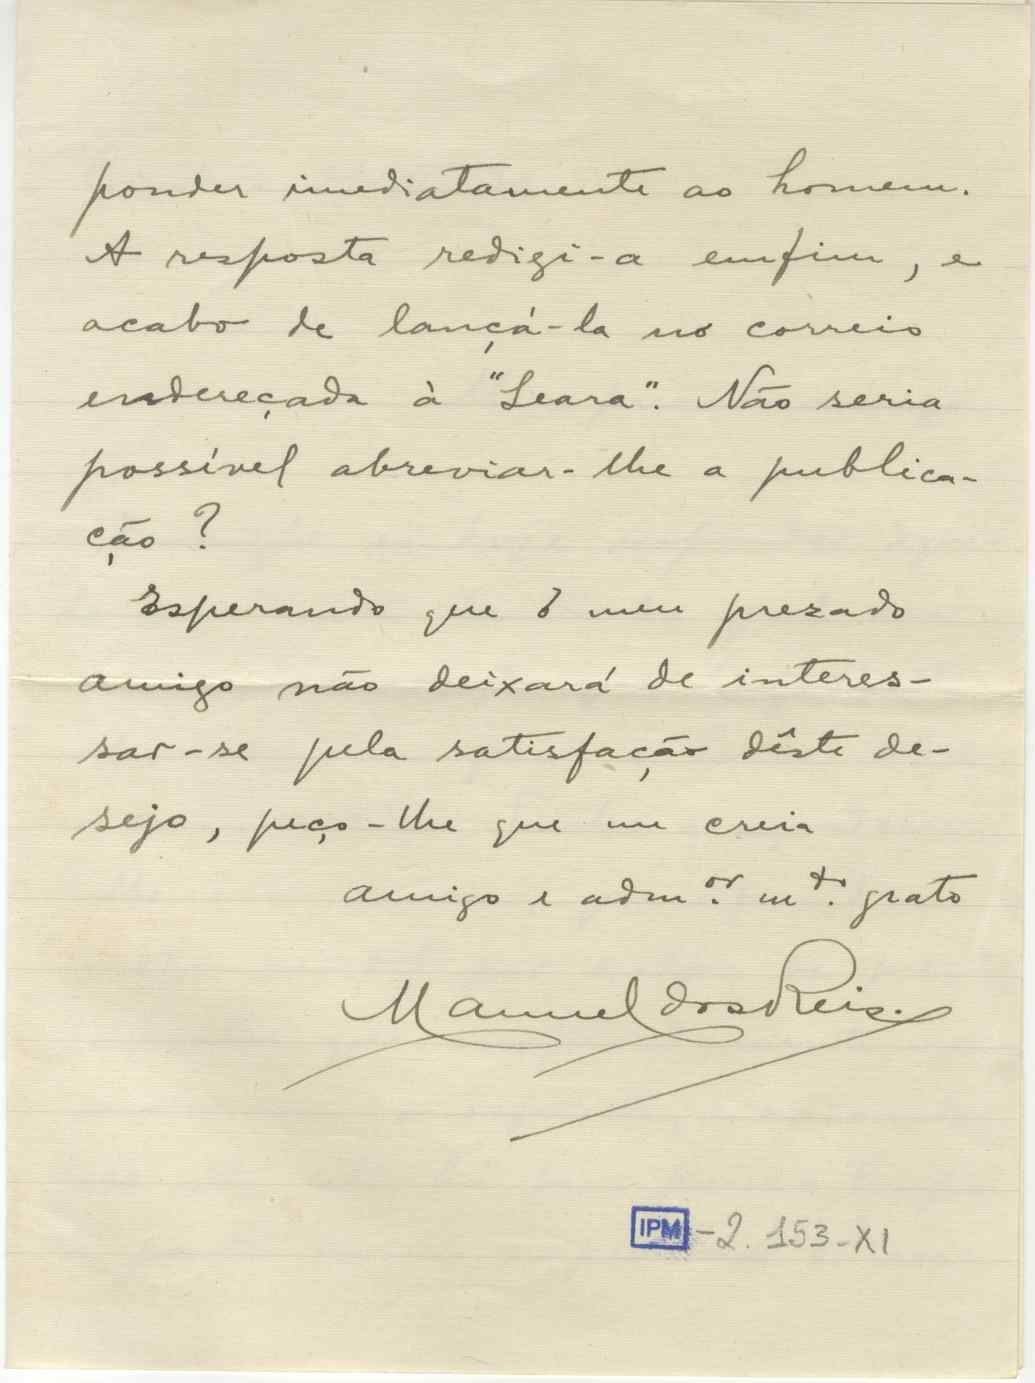 ponder imediatamente ao homem.
A resposta redigi-a emfim, e
acabo de lançá-la no correio
endereçada à "Seara". Não seria
possível abreviar-lhe a publica-
ção?
Esperando que o meu prezado
amigo não deixará de interes-
sar-se pela satisfação dêste de-
sejo, peço-lhe que me creia
amigo e adm.or m.to grato
Manuel dos Reis.
IPM -2. 153-XI